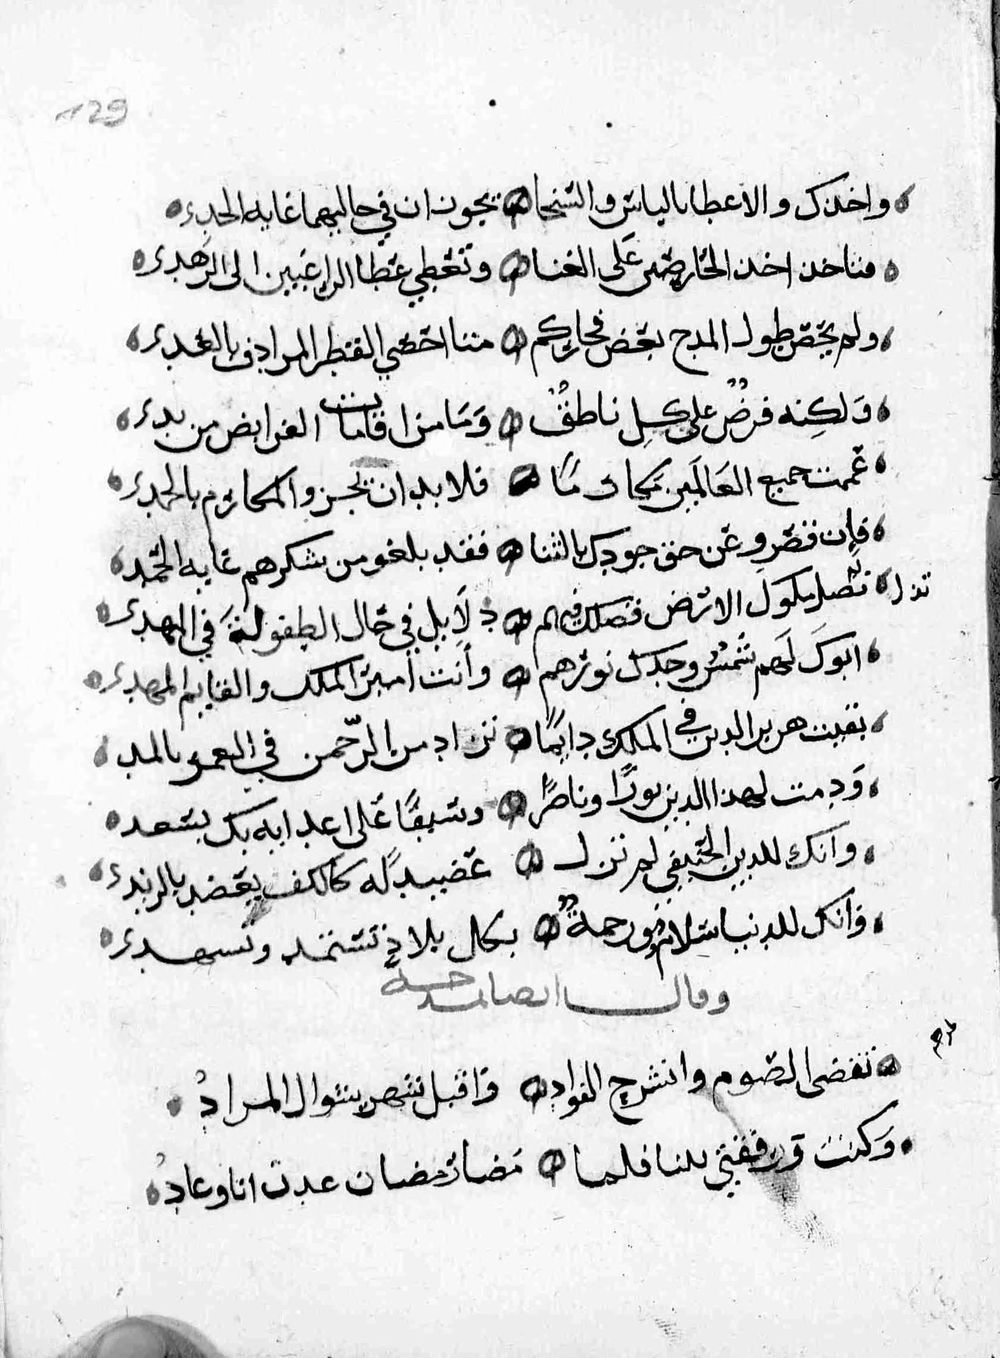 129
واخذك والاعطا بالباس والسخا يجوزان في حاليهما غايه الحد
فتاخذ اخذ الحارصين على الغنا وتعطي عطا الراغبين الى الزهد
ولم يحص طول المدح بعض فخاركم متى احصي القطر المرادف بالعد
ولكنه فرض على كل ناطق وما من اقامات الفرايض من بد
عممت جميع العالمين مكارمًا فلا بد ان تجزوا المكارم بالحمد
فإن قصرو عن حق جودك بالثنا فقد بلغو من شكرهم غايه الجهد
ملوك الارض فضلك فيهم بل في حال الطفولة في المهد
ابوك لهم شمس وجدك نورهم وأنت أمين الملك والقايم المهدي
بقيت هزبر الدين في الملك دايمًا تزاد من الرحمن في العمر بالمد
ودمت لهذا الدين نورًا وناصرًا وسيفًا على اعدايه بك يستعد
وانك للدين الحنيفي لم تزل عضيدًا له كالكف يعضد بالزند
وانك للدنيا سلام ورحمة بكل بلاد تستمد وتسهد
وقال ايضا يمدحه
تقضى الصوم وانشرح الفواد واقبل شهر شوال المراد
وكنت رفقتي بلنا فلما مضا رمضان عدت انا وعادُ